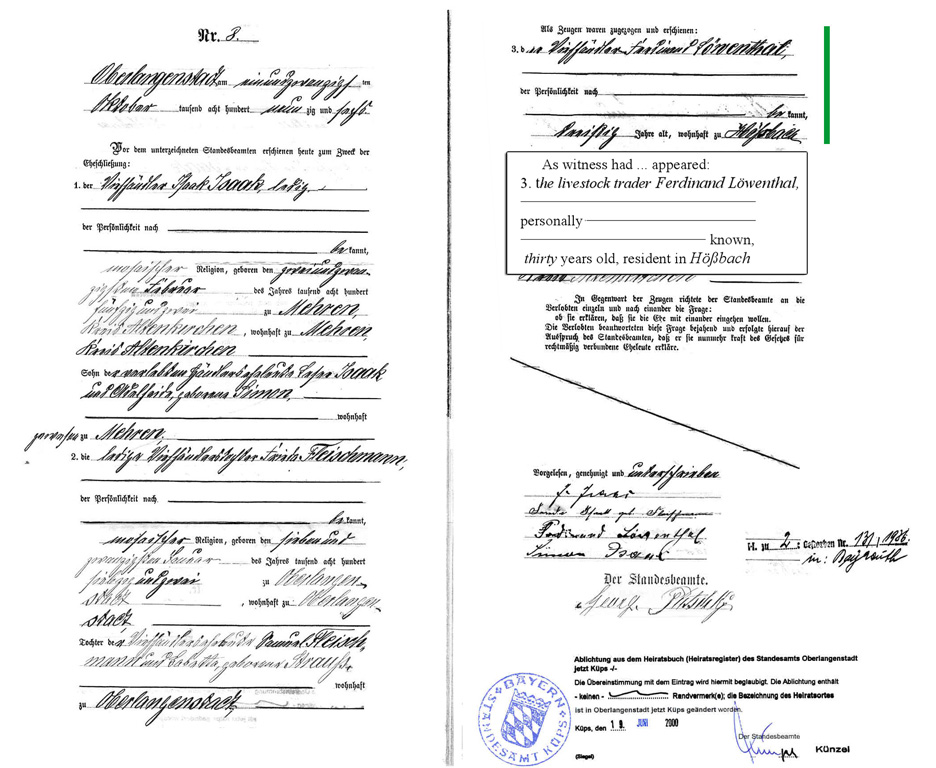 Nr. 8.
Oberlangenstadt am einundzwanzigsten
Oktober tausend acht hundert neunzig und sechs.
Vor dem unterzeichneten Standesbeamten erschienen heute zum Zweck der
Eheschließung:
1. der Viehhändler Isaak Isaak, ledig
der Persönlichkeit nach
be kannt,
mosaischer Religion, geboren den zweiundzwan-
zigsten Februar des Jahres tausend acht hundert
fünfzig und zwei zu Mehren,
Kreis Altenkirchen, wohnhaft zu Mehren,
Kreis Altenkirchen
Sohn der verlebten Händlerseheleute Isaak
und Adelheid, geborene Simon,
wohnhaft
gewesen zu Mehren.
2. die ledige Viehhändlerstochter Fleischmann,
der Persönlichkeit nach
be kannt,
mosaischer Religion, geboren den sieben und
zwanzigsten Januar des Jahres tausend acht hundert
siebzig und zwei zu Oberlangen-
stadt, wohnhaft zu Oberlangen-
stadt
Tochter der Viehhändlerseheleute Samuel Fleisch-
mann und Babette, geborene Strauß,
wohnhaft
zu Oberlangenstadt
Als Zeugen waren zugezogen und erschienen:
3. d er Viehhändler Ferdinand Löwenthal,
der Persönlichkeit nach
be kannt,
dreißig Jahre alt, wohnhaft zu Hößbach
As witness had ... appeared:
3. the livestock trader Ferdinand Löwenthal,
personally
known,
thirty years old, resident in Hößbach
In Gegenwart der Zeugen richtete der Standesbeamte an die
Verlobten einzeln und nach einander die Frage:
ob sie erklären, daß sie die Ehe mit einander eingehen wollen.
Die Verlobten beantworteten diese Frage bejahend und erfolgte hierauf der
Ausspruch des Standesbeamten, daß er sie nunmehr kraft des Gesetzes für
rechtmäßig verbundene Eheleute erkläre.
Vorgelesen, genehmigt und unterschrieben
Ferdinand Löwenthal
Simon Isaak
H. zu 2: Gestorben Nr. 131/1936
in: Bayreuth
Der Standesbeamte.
Georg
Ablichtung aus dem Heiratsbuch (Heiratsregister) des Standesamts Oberlangenstadt
jetzt Küps -/-
Die Übereinstimmung mit dem Eintrag wird hiermit beglaubigt. Die Ablichtung enthält
- keinen - Randvermerk(e); die Bezeichnung des Heiratsortes
ist in Oberlangenstadt jetzt Küps geändert worden.
Küps, den 19. JUNI 2000
Der Standesbeamte
Künzel
(Siegel)
BAYERN
STANDESAMT KÜPS